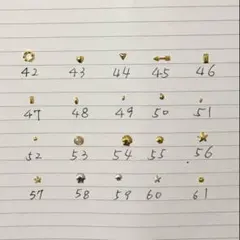 42 43 44 45 46
47 48 49 50 51
52 53 54 55 56
57 58 59 60 61